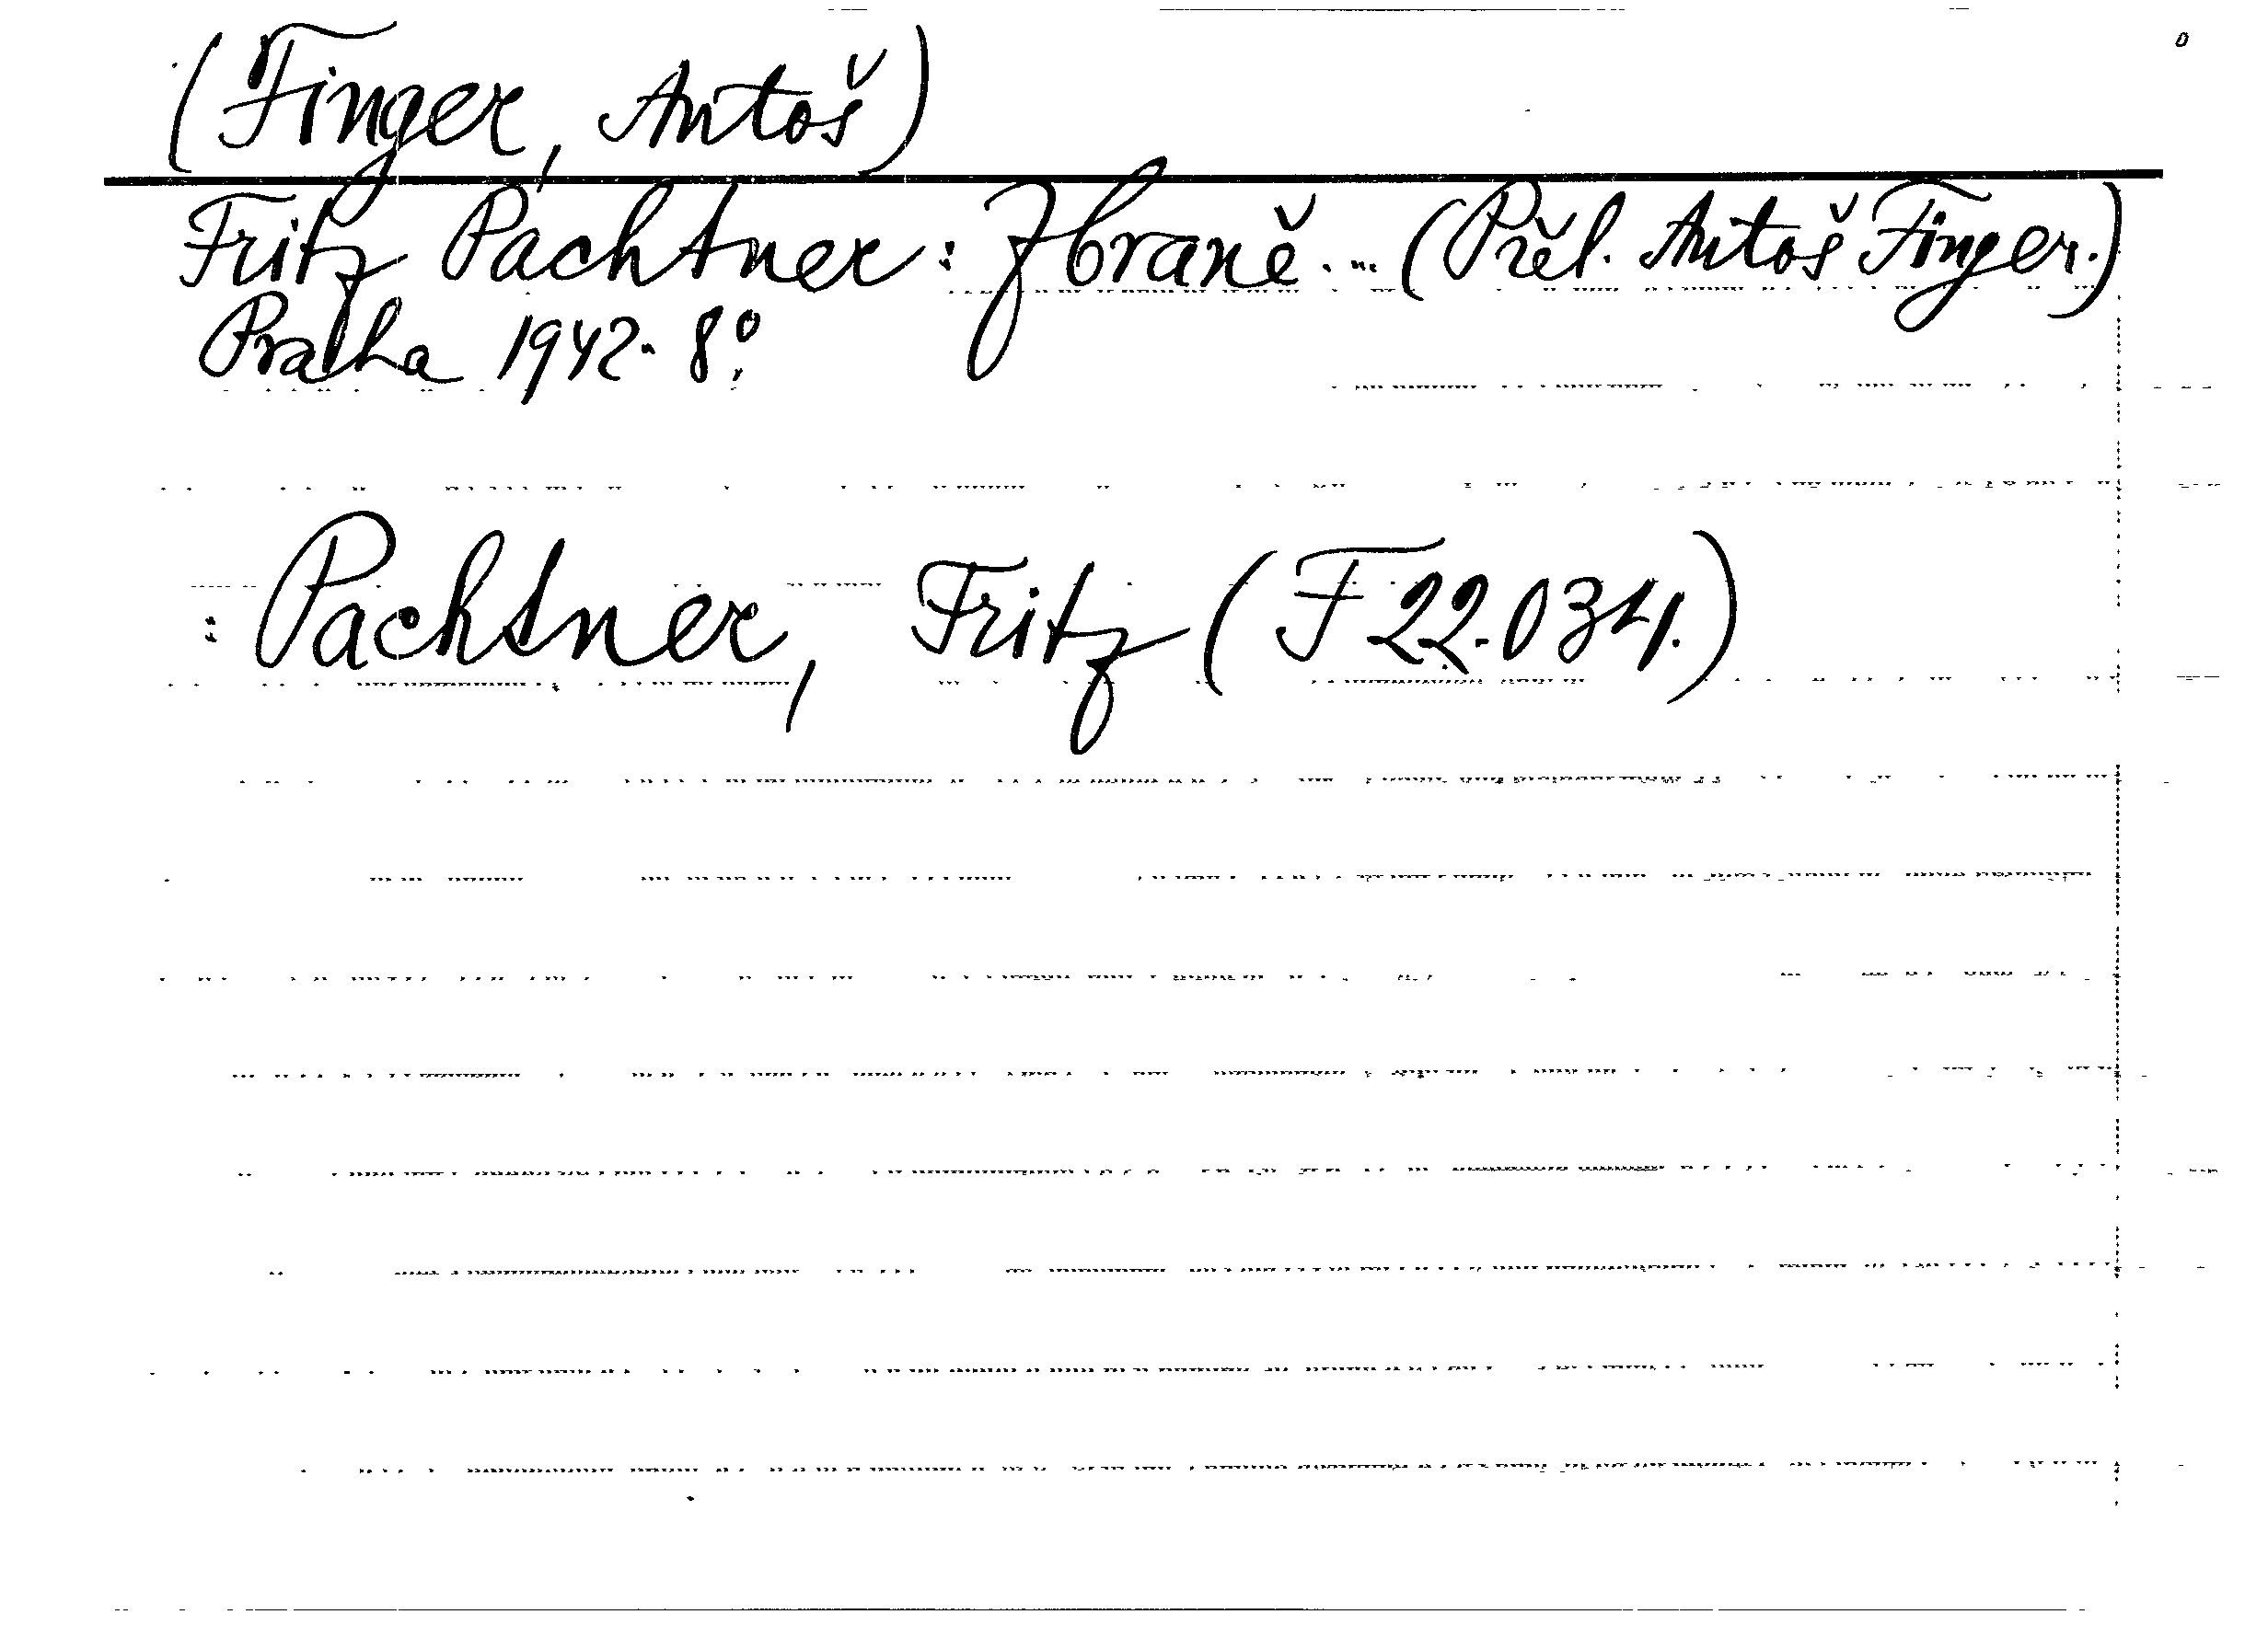 (Finger, Antoš)
Fritz Pachtner: Zbraně... (Přel. Antoš Finger.)
Praha 1942. 8°.
: Pachtner, Fritz (F 22.034.)